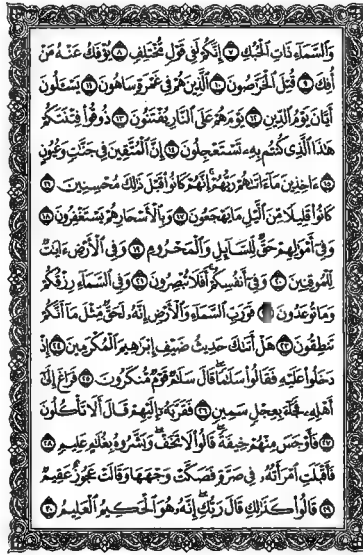 وَالسَّمَاءِ ذَاتِ الْحُبُكِ ٧ إِنَّكُمْ لَفِي قَوْلٍ مُّخْتَلِفٍ ٨ يُؤْفَكُ عَنْهُ مَنْ
أُفِكَ ٩ قُتِلَ الْخَرَّاصُونَ ١٠ الَّذِينَ هُمْ فِي غَمْرَةٍ سَاهُونَ ١١ يَسْـَٔلُونَ
أَيَّانَ يَوْمُ الدِّينِ ١٢ يَوْمَ هُمْ عَلَى النَّارِ يُفْتَنُونَ ١٣ ذُوقُوا فِتْنَتَكُمْ
هَٰذَا الَّذِي كُنتُم بِهِۦ تَسْتَعْجِلُونَ ١٤ إِنَّ الْمُتَّقِينَ فِي جَنَّٰتٍ وَعُيُونٍ
١٥ ءَاخِذِينَ مَا ءَاتَىٰهُمْ رَبُّهُمْ إِنَّهُمْ كَانُوا قَبْلَ ذَٰلِكَ مُحْسِنِينَ ١٦
كَانُوا قَلِيلًا مِّنَ الَّيْلِ مَا يَهْجَعُونَ ١٧ وَبِالْأَسْحَارِ هُمْ يَسْتَغْفِرُونَ ١٨
وَفِي أَمْوَٰلِهِمْ حَقٌّ لِّلسَّائِلِ وَالْمَحْرُومِ ١٩ وَفِي الْأَرْضِ ءَايَٰتٌ
لِّلْمُوقِنِينَ ٢٠ وَفِي أَنفُسِكُمْ أَفَلَا تُبْصِرُونَ ٢١ وَفِي السَّمَاءِ رِزْقُكُمْ
وَمَا تُوعَدُونَ فَوَرَبِّ السَّمَاءِ وَالْأَرْضِ إِنَّهُۥ لَحَقٌّ مِّثْلَ مَا أَنَّكُمْ
تَنطِقُونَ ٢٣ هَلْ أَتَىٰكَ حَدِيثُ ضَيْفِ إِبْرَٰهِيمَ الْمُكْرَمِينَ ٢٤ إِذْ
دَخَلُوا عَلَيْهِ فَقَالُوا سَلَٰمًا قَالَ سَلَٰمٌ قَوْمٌ مُّنكَرُونَ ٢٥ فَرَاغَ إِلَىٰ
أَهْلِهِۦ فَجَاءَ بِعِجْلٍ سَمِينٍ ٢٦ فَقَرَّبَهُۥ إِلَيْهِمْ قَالَ أَلَا تَأْكُلُونَ
٢٧ فَأَوْجَسَ مِنْهُمْ خِيفَةً قَالُوا لَا تَخَفْ وَبَشَّرُوهُ بِغُلَٰمٍ عَلِيمٍ ٢٨
فَأَقْبَلَتِ امْرَأَتُهُۥ فِي صَرَّةٍ فَصَكَّتْ وَجْهَهَا وَقَالَتْ عَجُوزٌ عَقِيمٌ
٢٩ قَالُوا كَذَٰلِكِ قَالَ رَبُّكِ إِنَّهُۥ هُوَ الْحَكِيمُ الْعَلِيمُ ٣٠